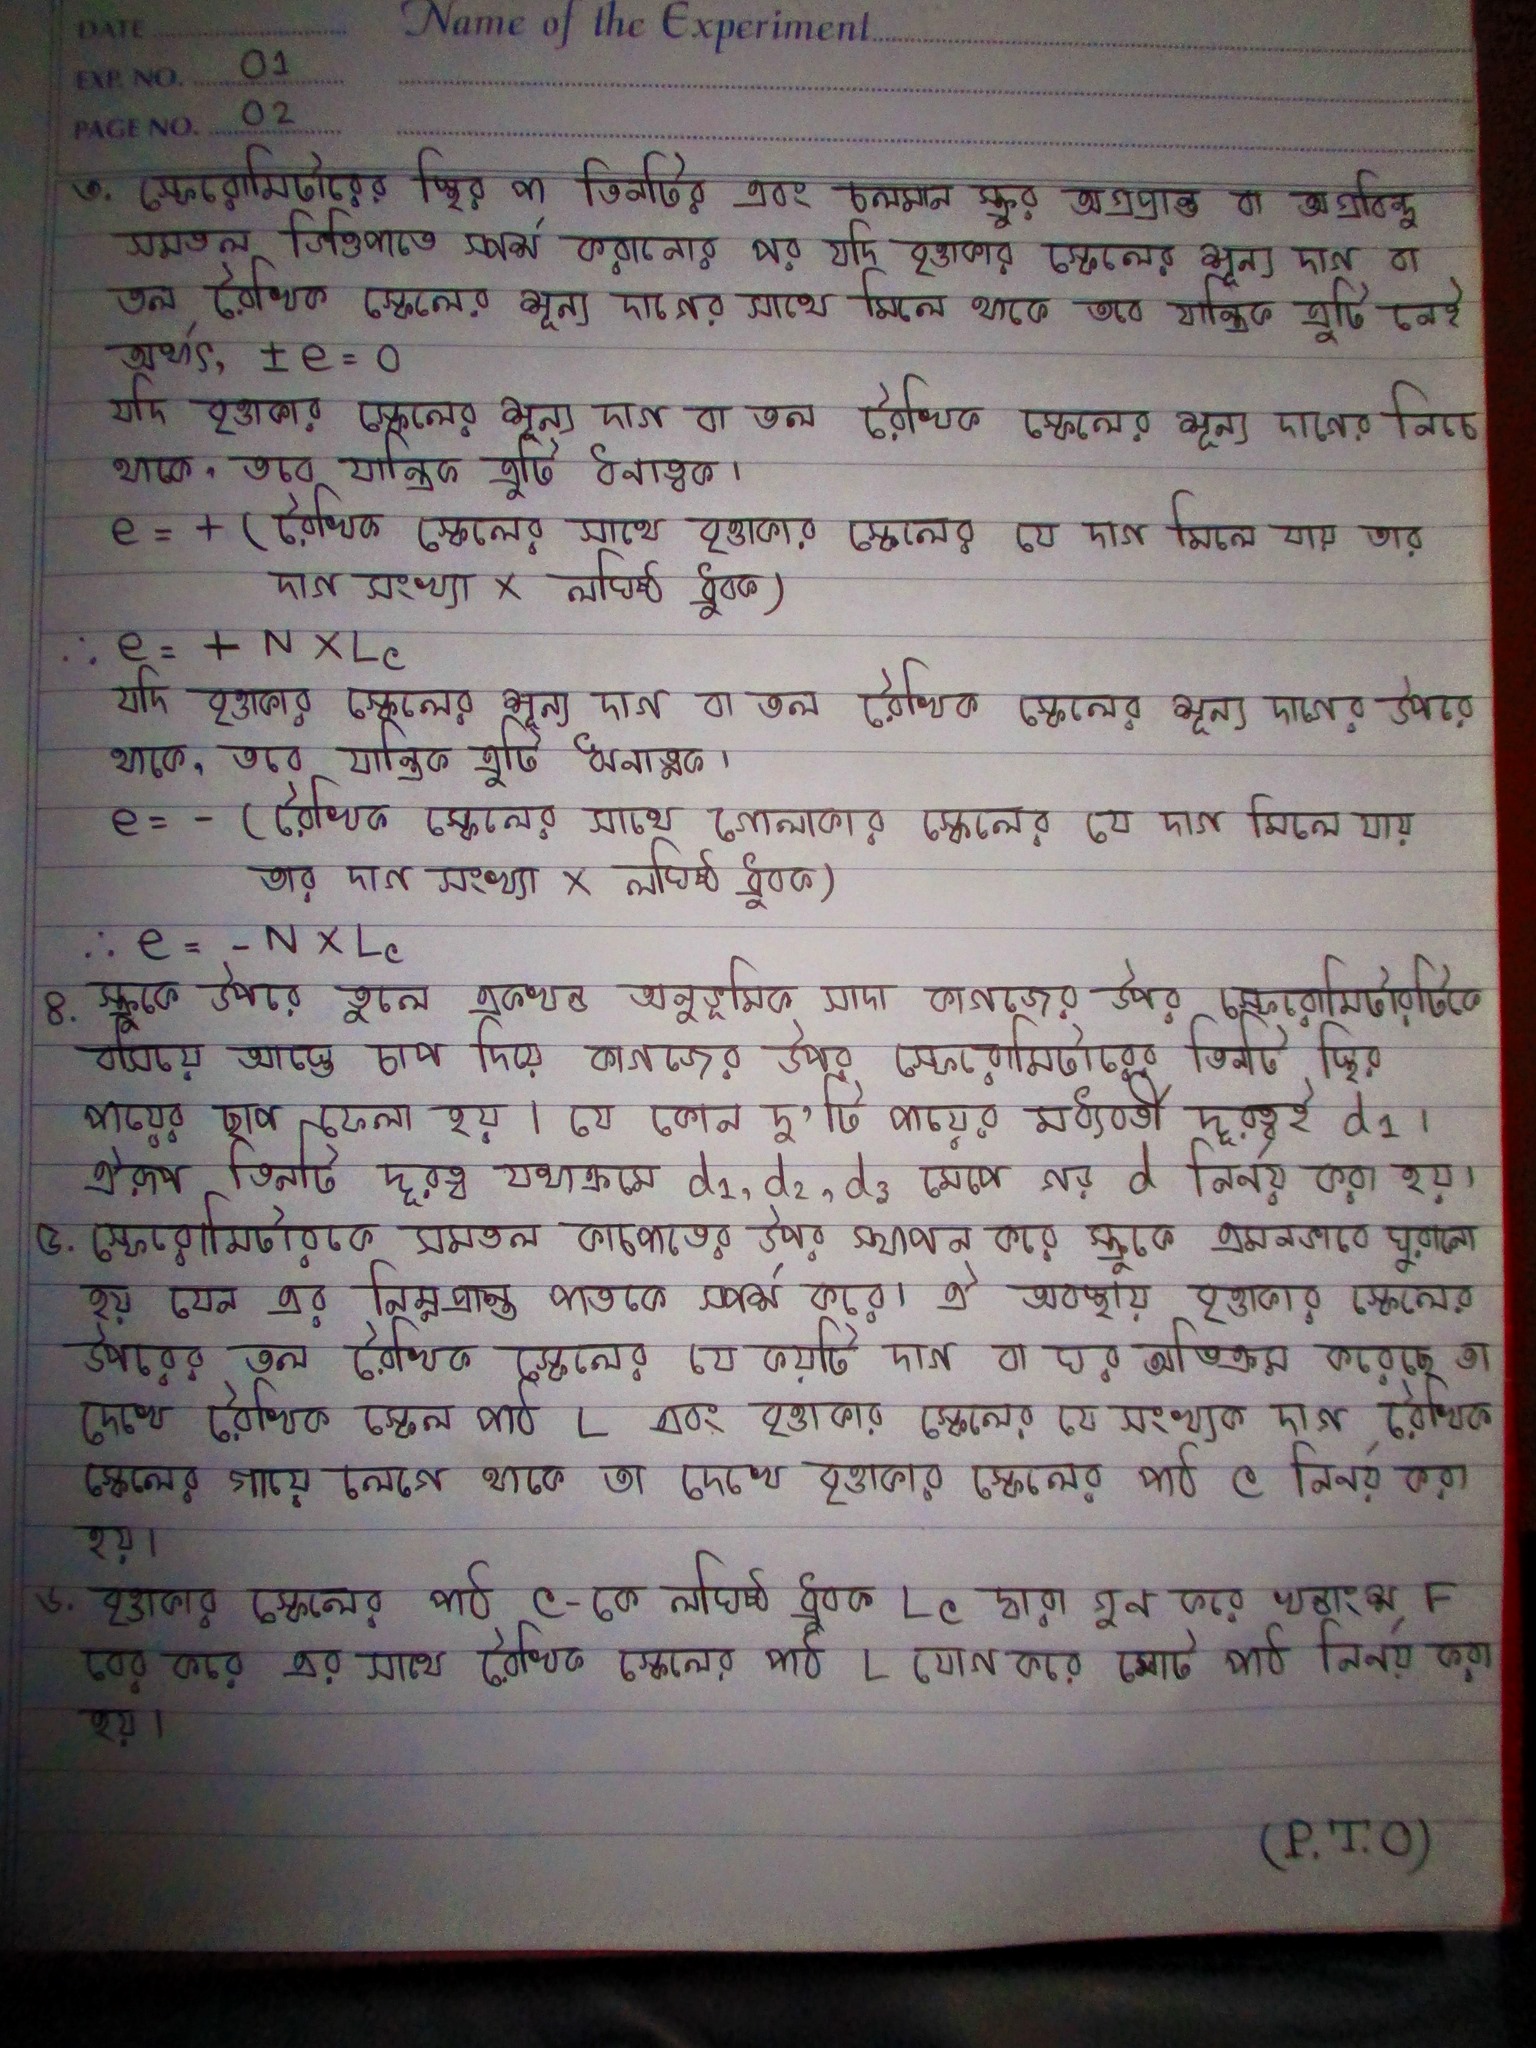 DATE
Name of the Experiment
EXP. NO. 01
PAGE NO. 02
৩. স্ফেরোমিটারের স্থির পা তিনটির এবং চলমান স্ক্রুর অগ্রপ্রান্ত বা অগ্রবিন্দু
সমতল ভিত্তিপাতে স্পর্শ করানোর পর যদি বৃত্তাকার স্কেলের শূন্য দাগ বা
তল রৈখিক স্কেলের শূন্য দাগের সাথে মিলে থাকে তবে যান্ত্রিক ত্রুটি নেই
অর্থাৎ, ± e = 0
যদি বৃত্তাকার স্কেলের শূন্য দাগ বা তল রৈখিক স্কেলের শূন্য দাগের নিচে
থাকে, তবে যান্ত্রিক ত্রুটি ধনাত্বক।
e = + (রৈখিক স্কেলের সাথে বৃত্তাকার স্কেলের যে দাগ মিলে যায় তার
দাগ সংখ্যা × লঘিষ্ঠ ধ্রুবক)
∴ e = + N × Lc
যদি বৃত্তাকার স্কেলের শূন্য দাগ বা তল রৈখিক স্কেলের শূন্য দাগের উপরে
থাকে, তবে যান্ত্রিক ত্রুটি ঋনাত্মক।
e = - (রৈখিক স্কেলের সাথে গোলাকার স্কেলের যে দাগ মিলে যায়
তার দাগ সংখ্যা × লঘিষ্ঠ ধ্রুবক)
∴ e = - N × Lc
৪. স্ক্রুকে উপরে তুলে একখন্ড অনুভূমিক সাদা কাগজের উপর স্ফেরোমিটারটিকে
বসিয়ে আস্তে চাপ দিয়ে কাগজের উপর স্ফেরোমিটারের তিনটি স্থির
পায়ের ছাপ ফেলা হয়। যে কোন দু'টি পায়ের মধ্যবর্তী দূরত্বই d1।
ঐরূপ তিনটি দূরত্ব যথাক্রমে d1, d2, d3 মেপে গর d নির্নয় করা হয়।
৫. স্ফেরোমিটারকে সমতল কাচপাতের উপর স্থাপন করে স্ক্রুকে এমনভাবে ঘুরানো
হয় যেন এর নিম্নপ্রান্ত পাতকে স্পর্শ করে। ঐ অবস্থায় বৃত্তাকার স্কেলের
উপরের তল রৈখিক স্কেলের যে কয়টি দাগ বা ঘর অতিক্রম করেছে তা
দেখে রৈখিক স্কেল পাঠ L এবং বৃত্তাকার স্কেলের যে সংখ্যক দাগ রৈখিক
স্কেলের গায়ে লেগে থাকে তা দেখে বৃত্তাকার স্কেলের পাঠ C নির্নয় করা
হয়।
৬. বৃত্তাকার স্কেলের পাঠ C-কে লঘিষ্ঠ ধ্রুবক Lc দ্বারা গুন করে খন্ডাংশ F
বের করে এর সাথে রৈখিক স্কেলের পাঠ L যোগ করে মোট পাঠ নির্নয় করা
হয়।
(P.T.O)